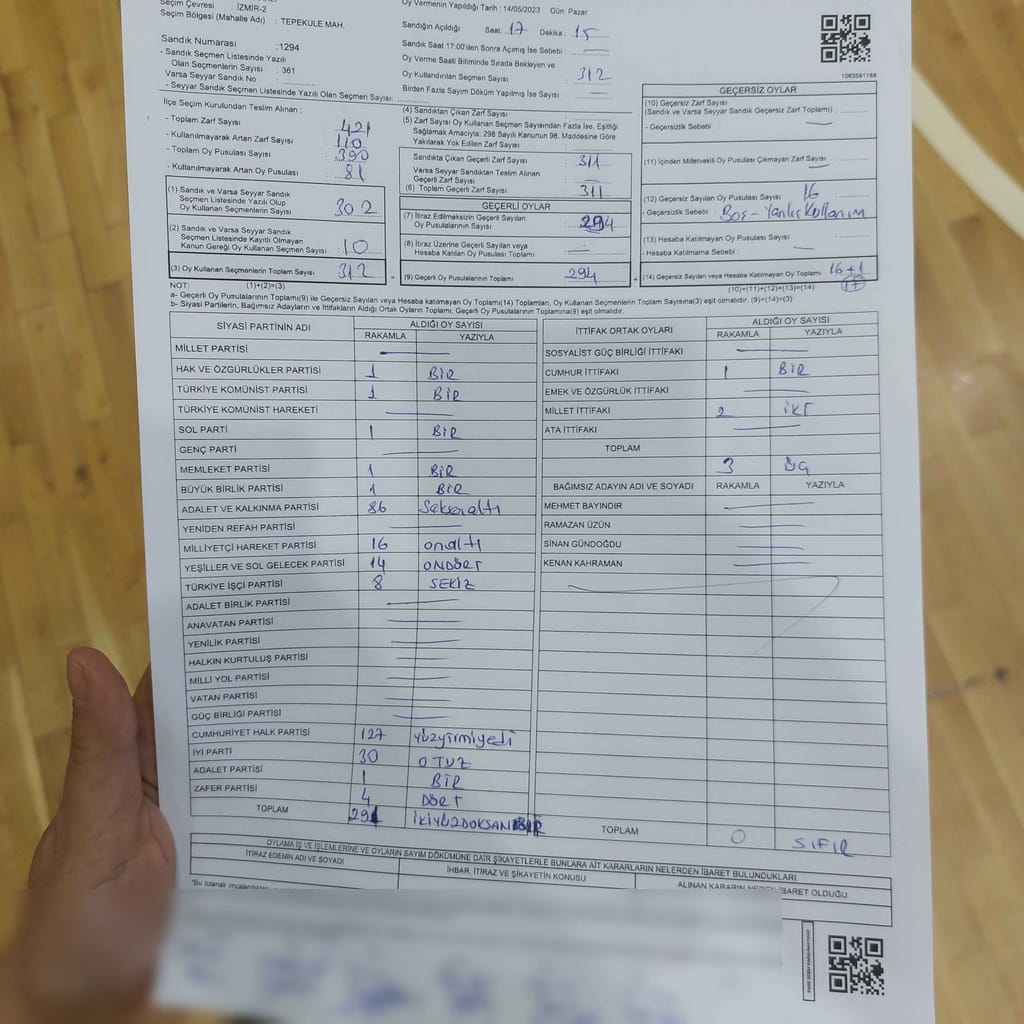 Seçim Çevresi : İZMİR-2
Seçim Bölgesi (Mahalle Adı) : TEPEKULE MAH.
Sandık Numarası : 1294
- Sandık Seçmen Listesinde Yazılı
Olan Seçmenlerin Sayısı : 361
Varsa Seyyar Sandık No :
- Seyyar Sandık Seçmen Listesinde Yazılı Olan Seçmen Sayısı:
İlçe Seçim Kurulundan Teslim Alınan :
- Toplam Zarf Sayısı : 421
- Kullanılmayarak Artan Zarf Sayısı : 110
- Toplam Oy Pusulası Sayısı : 390
- Kullanılmayarak Artan Oy Pusulası : 81
(1) Sandık ve Varsa Seyyar Sandık
Seçmen Listesinde Yazılı Olup
Oy Kullanan Seçmenlerin Sayısı 302
(2) Sandık ve Varsa Seyyar Sandık
Seçmen Listesinde Kayıtlı Olmayan
Kanun Gereği Oy Kullanan Seçmen Sayısı : 10
(3) Oy Kullanan Seçmenlerin Toplam Sayısı 312
Oy Vermenin Yapıldığı Tarih : 14/05/2023 Gün: Pazar
Sandığın Açıldığı Saat: 17 Dakika : 15
Sandık Saat 17:00'den Sonra Açımış İse Sebebi :
Oy Verme Saati Bitiminde Sırada Bekleyen ve
Oy Kullandırılan Seçmen Sayısı : 312
Birden Fazla Sayım Döküm Yapılmış İse Sayısı :
(4) Sandıktan Çıkan Zarf Sayısı :
(5) Zarf Sayısı Oy Kullanan Seçmen Sayısından Fazla İse, Eşitliği
Sağlamak Amacıyla; 298 Sayılı Kanunun 98. Maddesine Göre
Yakılarak Yok Edilen Zarf Sayısı :
Sandıkta Çıkan Geçerli Zarf Sayısı : 311
Varsa Seyyar Sandıktan Teslim Alınan
Geçerli Zarf Sayısı :
(6) Toplam Geçerli Zarf Sayısı : 311
GEÇERLİ OYLAR
(7) İtiraz Edilmeksizin Geçerli Sayılan
Oy Pusulalarının Sayısı : 294
(8) İtiraz Üzerine Geçerli Sayılan veya
Hesaba Katılan Oy Pusulası Toplamı :
= (9) Geçerli Oy Pusulalarının Toplamı : 294
1083581168
GEÇERSİZ OYLAR
(10) Geçersiz Zarf Sayısı
(Sandık ve Varsa Seyyar Sandık Geçersiz Zarf Toplamı) :
- Geçersizlik Sebebi :
(11) İçinden Milletvekili Oy Pusulası Çıkmayan Zarf Sayısı :
(12) Geçersiz Sayılan Oy Pusulası Sayısı : 16
- Geçersizlik Sebebi : Boş - Yanlış Kullanım
(13) Hesaba Katılmayan Oy Pusulası Sayısı :
- Hesaba Katılmama Sebebi :
+ (14) Geçersiz Sayılan veya Hesaba Katılmayan Oy Toplamı 16+1
(10)+(11)+(12)+(13)=(14) 17
NOT: (1)+(2)=(3)
a- Geçerli Oy Pusulalarının Toplamı(9) ile Geçersiz Sayılan veya Hesaba katılmayan Oy Toplamı(14) Toplamları, Oy Kullanan Seçmenlerin Toplam Sayısına(3) eşit olmalıdır. (9)+(14)=(3)
b- Siyasi Partilerin, Bağımsız Adayların ve İttifakların Aldığı Ortak Oyların Toplamı, Geçerli Oy Pusulalarının Toplamına(9) eşit olmalıdır.
SİYASİ PARTİNİN ADI ALDIĞI OY SAYISI
RAKAMLA YAZIYLA
MİLLET PARTİSİ
HAK VE ÖZGÜRLÜKLER PARTİSİ 1 BİR
TÜRKİYE KOMÜNİST PARTİSİ 1 BİR
TÜRKİYE KOMÜNİST HAREKETİ
SOL PARTİ 1 BİR
GENÇ PARTİ
MEMLEKET PARTİSİ 1 BİR
BÜYÜK BİRLİK PARTİSİ 1 BİR
ADALET VE KALKINMA PARTİSİ 86 Seksenaltı
YENİDEN REFAH PARTİSİ
MİLLİYETÇİ HAREKET PARTİSİ 16 onaltı
YEŞİLLER VE SOL GELECEK PARTİSİ 14 ONDÖRT
TÜRKİYE İŞÇİ PARTİSİ 8 SEKİZ
ADALET BİRLİK PARTİSİ
ANAVATAN PARTİSİ
YENİLİK PARTİSİ
HALKIN KURTULUŞ PARTİSİ
MİLLİ YOL PARTİSİ
VATAN PARTİSİ
GÜÇ BİRLİĞİ PARTİSİ
CUMHURİYET HALK PARTİSİ 127 Yüzyirmiyedi
İYİ PARTİ 30 OTUZ
ADALET PARTİSİ 1 BİR
ZAFER PARTİSİ 4 DÖRT
TOPLAM 291 İKİYÜZDOKSANBİR
İTTİFAK ORTAK OYLARI ALDIĞI OY SAYISI
RAKAMLA YAZIYLA
SOSYALİST GÜÇ BİRLİĞİ İTTİFAKI
CUMHUR İTTİFAKI 1 BİR
EMEK VE ÖZGÜRLÜK İTTİFAKI
MİLLET İTTİFAKI 2 İKİ
ATA İTTİFAKI
TOPLAM
3 ÜÇ
BAĞIMSIZ ADAYIN ADI VE SOYADI RAKAMLA YAZIYLA
MEHMET BAYINDIR
RAMAZAN ÜZÜN
SİNAN GÜNDOĞDU
KENAN KAHRAMAN
TOPLAM 0 SIFIR
OYLAMA İŞ VE İŞLEMLERİNE VE OYLARIN SAYIM DÖKÜMÜNE DAİR ŞİKAYETLERLE BUNLARA AİT KARARLARIN NELERDEN İBARET BULUNDUKLARI
İTİRAZ EDENİN ADI VE SOYADI İHBAR, İTİRAZ VE ŞİKAYETİN KONUSU ALINAN KARARIN NEDEN İBARET OLDUĞU
"Bu tutanak